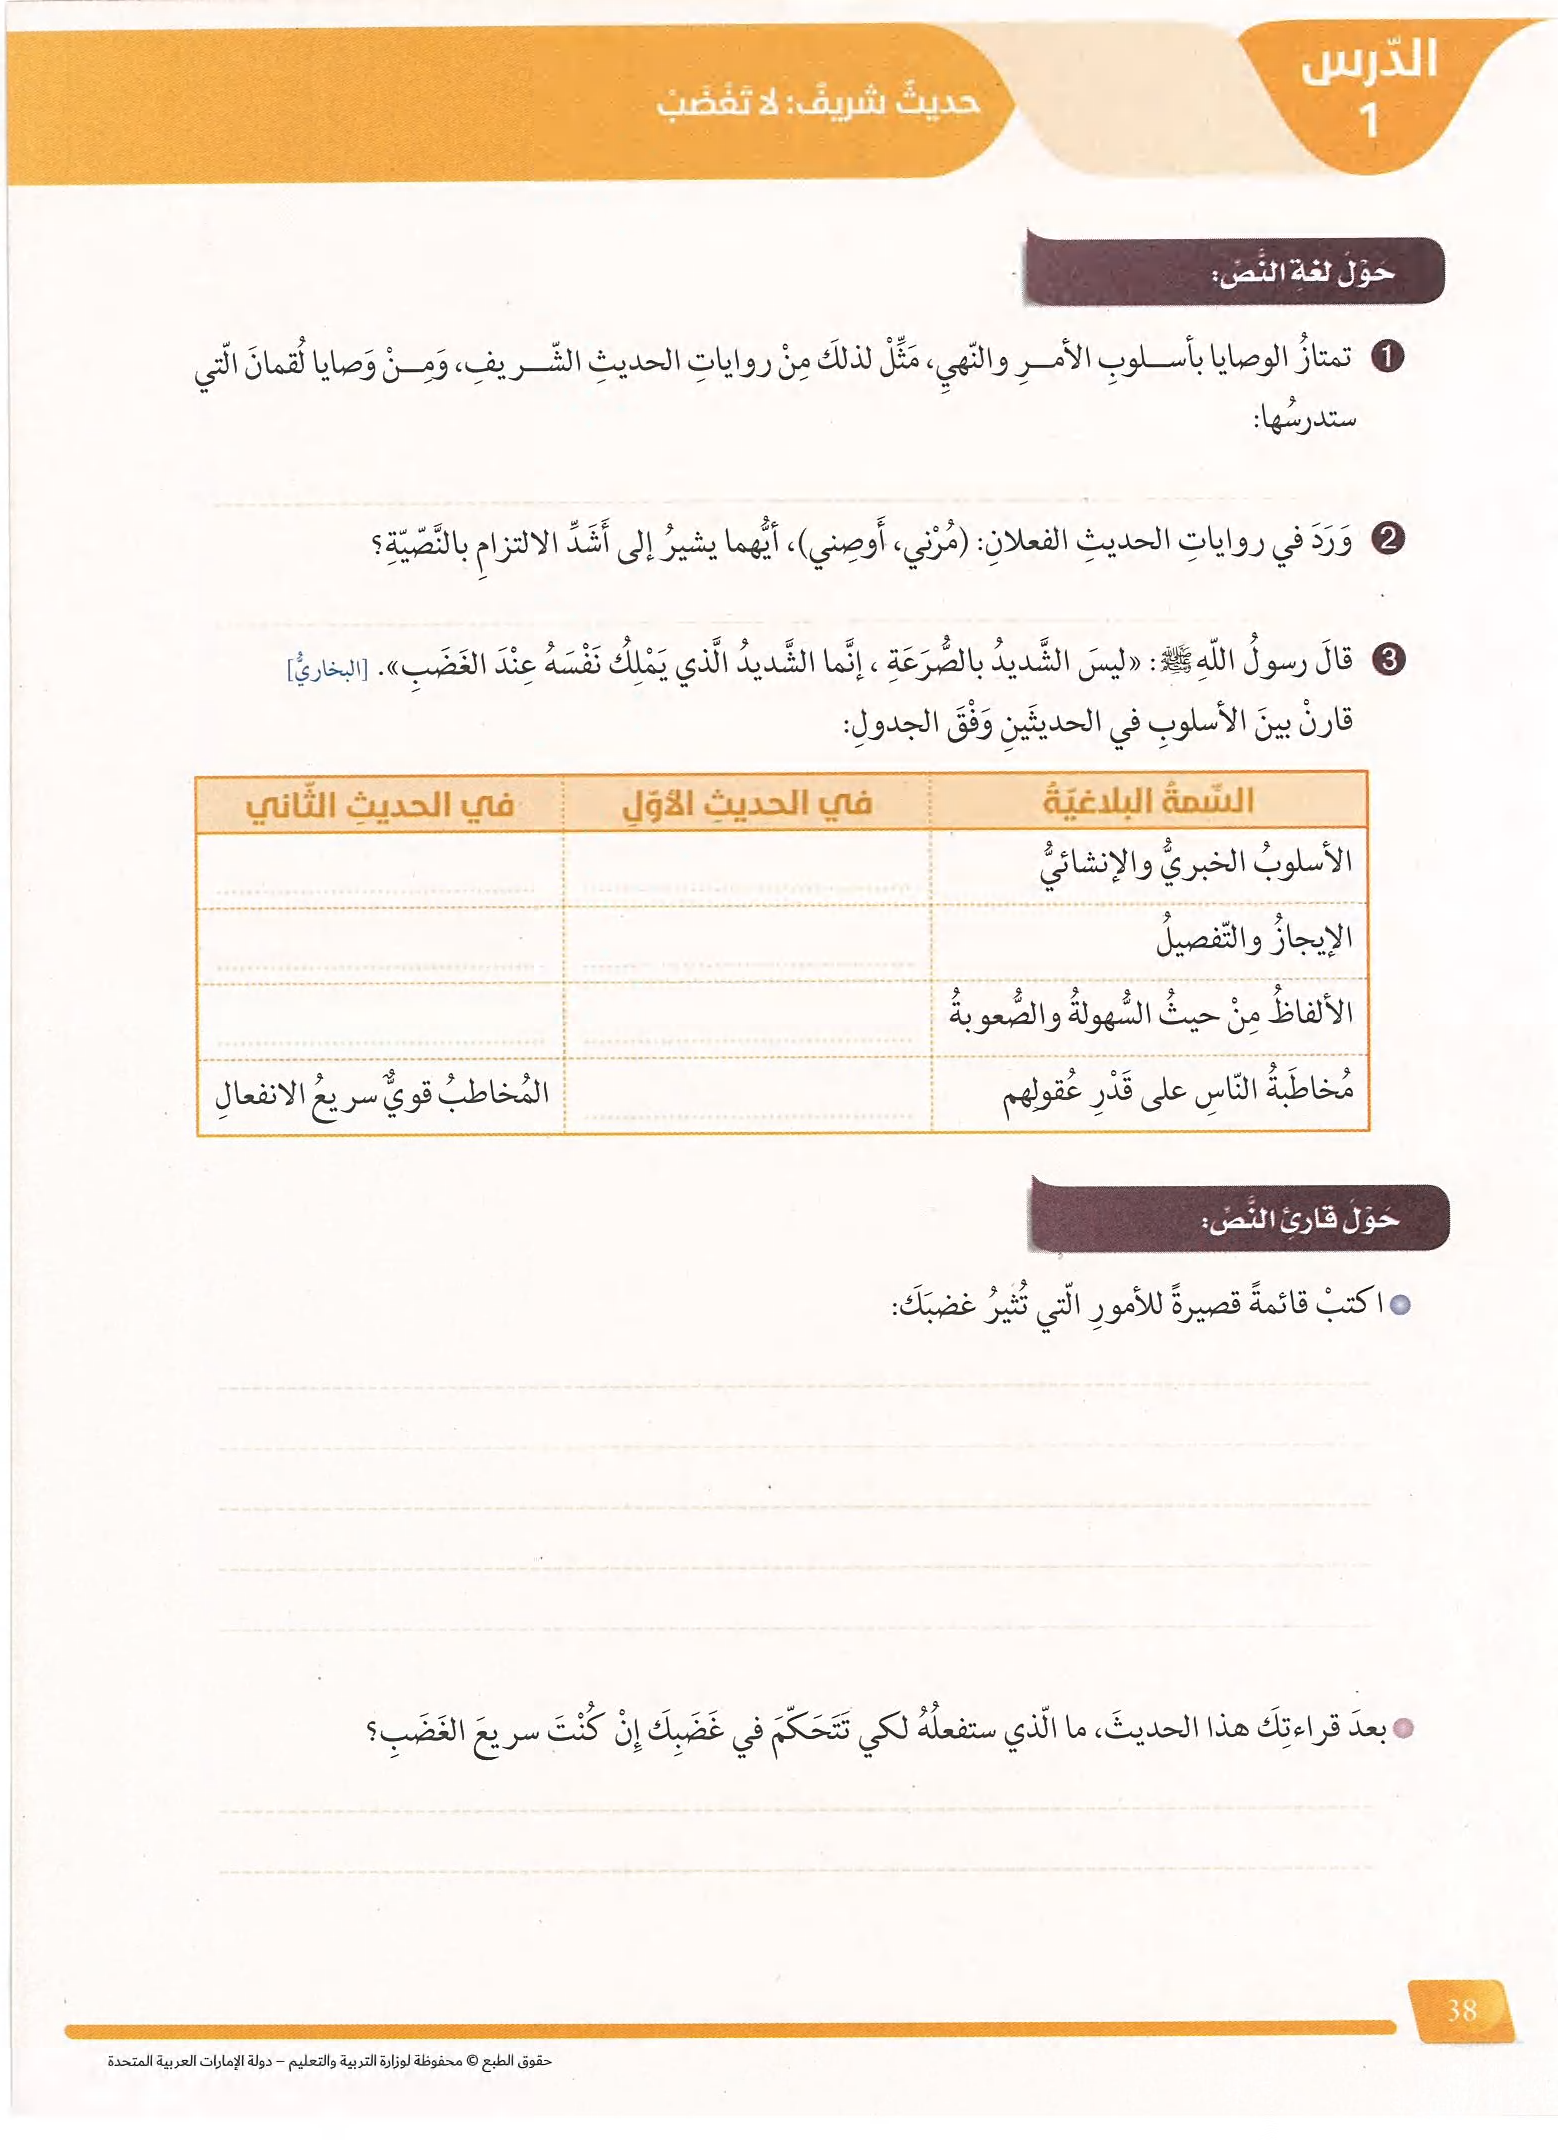 الدّرس
1
حديثٌ شريفٌ: لا تَغْضَبْ
حَوْلَ لغةِ النَّصِّ:
1 تمتازُ الوصايا بأسلوبِ الأمرِ والنّهيِ، مَثِّلْ لذلكَ مِنْ رواياتِ الحديثِ الشّريفِ، وَمِنْ وَصايا لُقمانَ الّتي
ستدرسُها:
2 وَرَدَ في رواياتِ الحديثِ الفعلانِ: (مُرْني، أَوصِني)، أيُّهما يشيرُ إلى أَشَدِّ الالتزامِ بالنَّصّيّةِ؟
3 قالَ رسولُ اللّهِ ﷺ: «ليسَ الشَّديدُ بالصُّرَعَةِ، إنَّما الشَّديدُ الَّذي يَمْلِكُ نَفْسَهُ عِنْدَ الغَضَبِ». [البخاريُّ]
قارنْ بينَ الأسلوبِ في الحديثَينِ وَفْقَ الجدولِ:
السّمةُ البلاغيّةُ في الحديثِ الأوّلِ في الحديثِ الثّاني
الأسلوبُ الخبريُّ والإنشائيُّ
الإيجازُ والتّفصيلُ
الألفاظُ مِنْ حيثُ السُّهولةُ والصُّعوبةُ
مُخاطَبةُ النّاسِ على قَدْرِ عُقولِهم المُخاطبُ قويٌّ سريعُ الانفعالِ
حَوْلَ قارئِ النَّصِّ:
اكتبْ قائمةً قصيرةً للأمورِ الّتي تُثيرُ غضبَكَ:
بعدَ قراءتِكَ هذا الحديثَ، ما الّذي ستفعلُهُ لكي تَتَحَكّمَ في غَضَبِكَ إنْ كُنْتَ سريعَ الغَضَبِ؟
38
حقوق الطبع © محفوظة لوزارة التربية والتعليم – دولة الإمارات العربية المتحدة